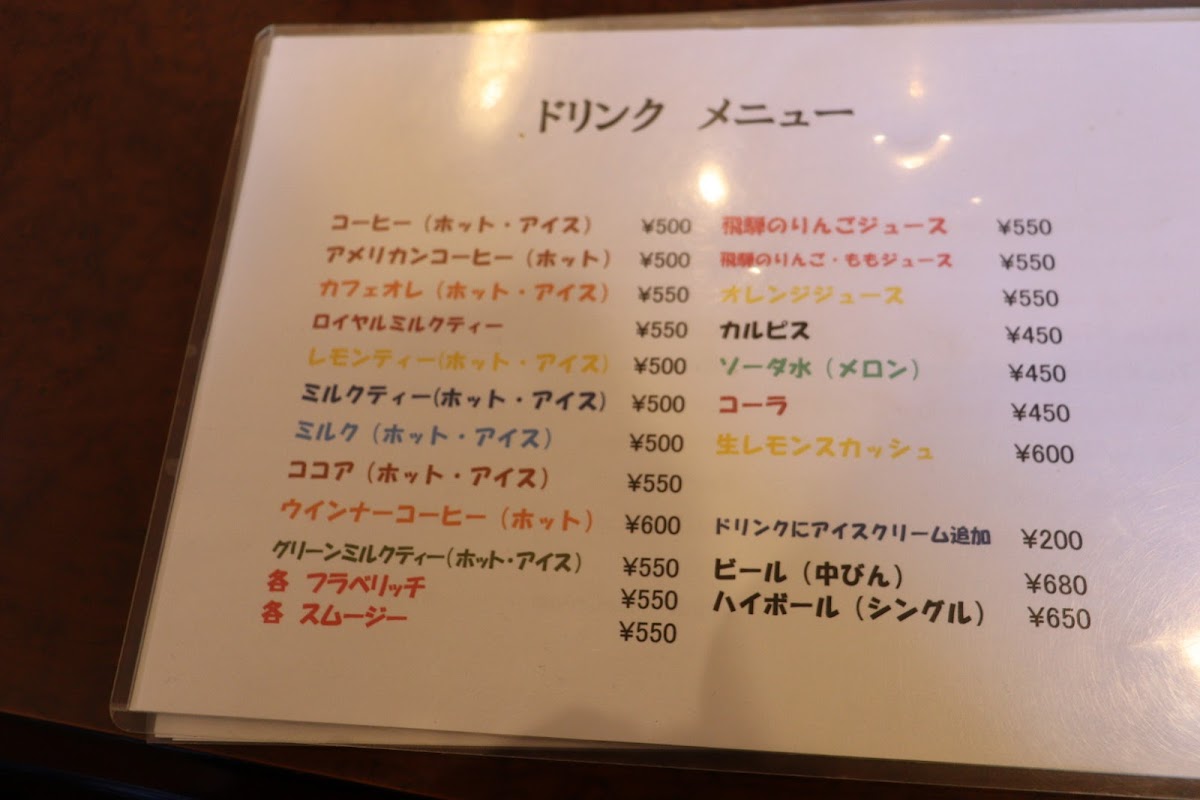 ドリンク メニュー
コーヒー（ホット・アイス） ¥500
アメリカンコーヒー（ホット） ¥500
カフェオレ（ホット・アイス） ¥550
ロイヤルミルクティー ¥550
レモンティー(ホット・アイス) ¥500
ミルクティー(ホット・アイス) ¥500
ミルク（ホット・アイス） ¥500
ココア（ホット・アイス） ¥550
ウインナーコーヒー（ホット） ¥600
グリーンミルクティー(ホット・アイス) ¥550
各 フラペリッチ ¥550
各 スムージー ¥550
飛騨のりんごジュース ¥550
飛騨のりんご・ももジュース ¥550
オレンジジュース ¥550
カルピス ¥450
ソーダ水（メロン） ¥450
コーラ ¥450
生レモンスカッシュ ¥600
ドリンクにアイスクリーム追加 ¥200
ビール（中びん） ¥680
ハイボール（シングル） ¥650